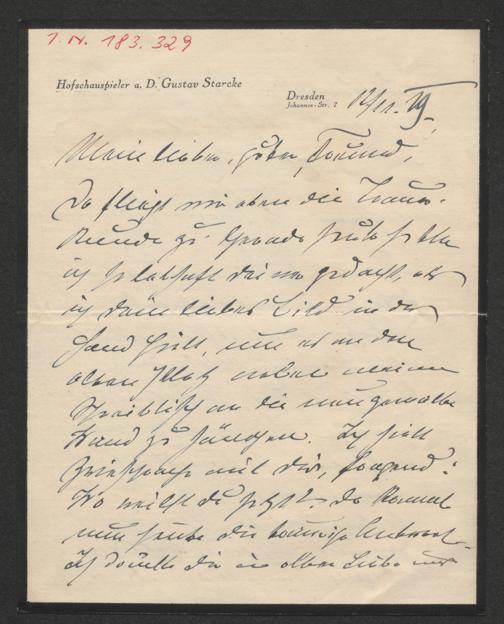 I. N. 183.329
Hofschauspieler a. D. Gustav Starcke
Dresden
Johannes-Str. 7
12/11. 19.
Mein lieber, guter Freund,
Da fliegt mir eben die Trauer-
kunde zu. Gerade heute habe
ich so lebhaft deiner gedacht, als
ich dein liebes Bild in der
Hand hielt, um es an den
alten Platz neben meinem
Schreibtisch an die neugemalte
Wand zu hängen. Ich hielt
Zwiesprache mit dir, fragend:
Wo weilst du jetzt? Da kommt
nun heute die traurige Antwort.
Ich drücke dir in alter Liebe und